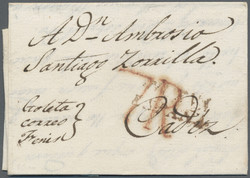 A Dn. Ambrosio
Santiago Zorrilla.
Goleta
correo
Fenix
Cadiz